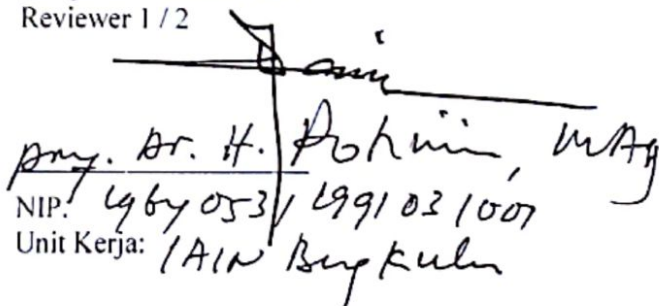 Reviewer 1 / 2
Prof. Dr. H. Rohimin, M.Ag
NIP. 19640531 199103 1001
Unit Kerja: IAIN Bengkulu